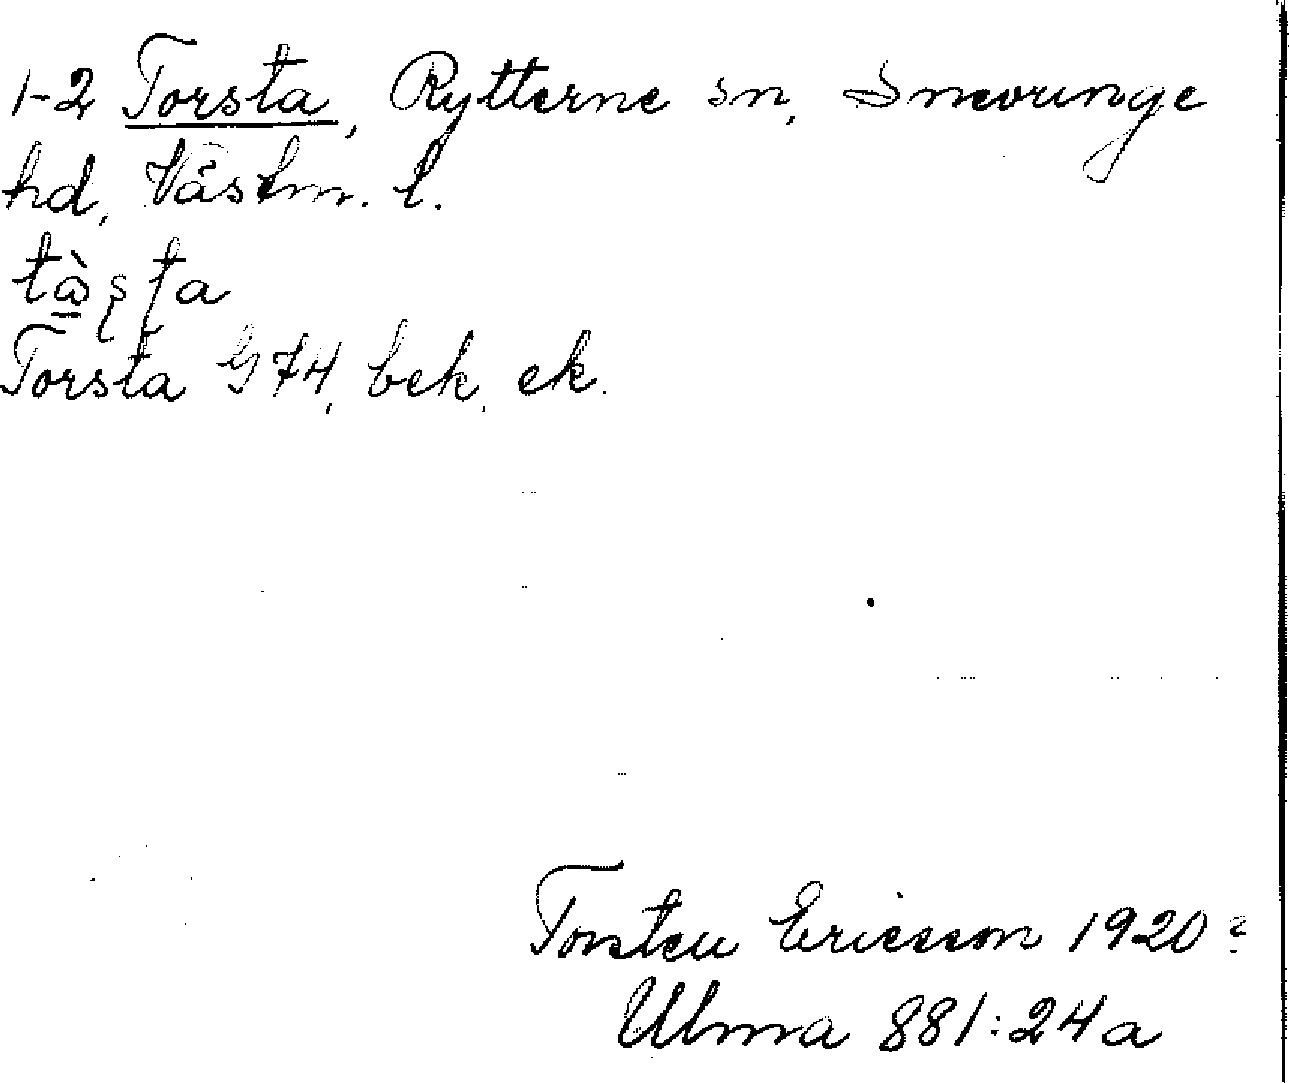 1-2 Torsta, Rytterne sn, Snevringe
hd, Västm. l.
Torsta G 74, bek, ek.
Torsten Ericsson 1920?
Ulma 881:24a